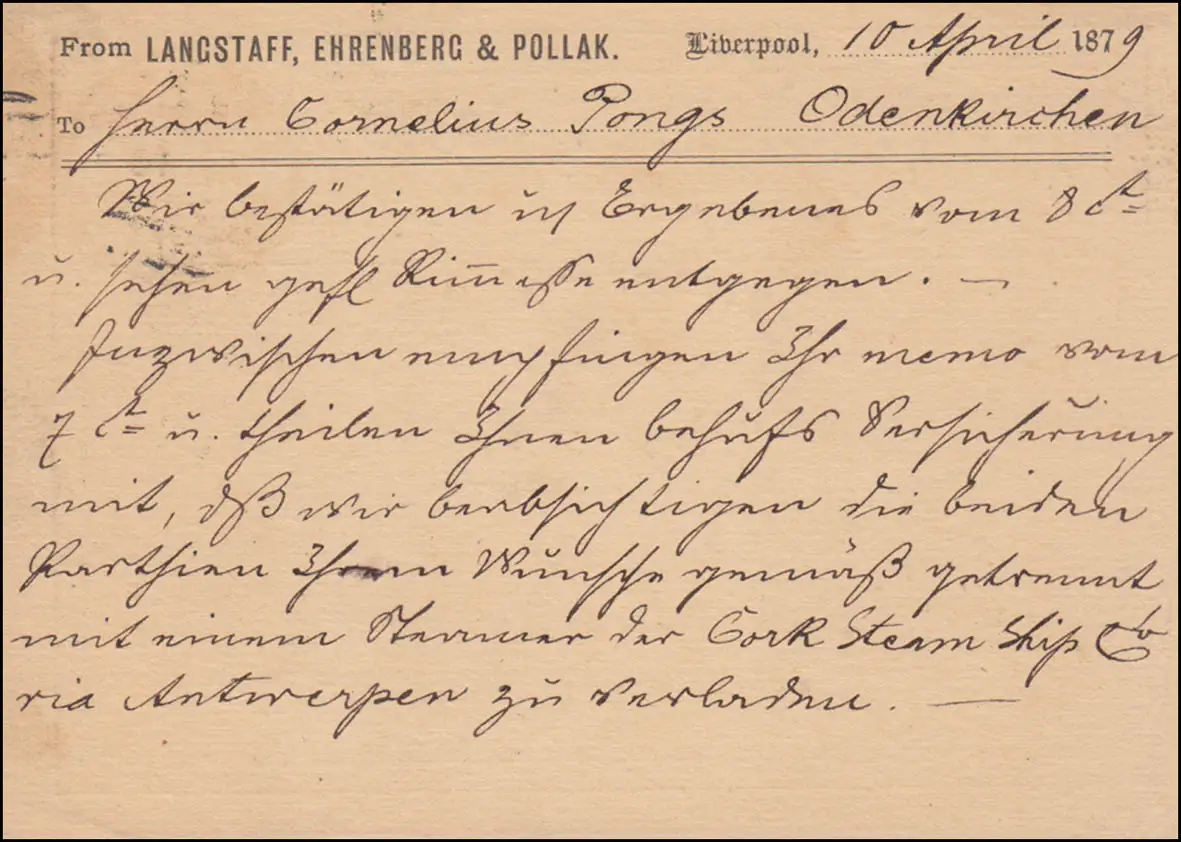 From LANGSTAFF, EHRENBERG & POLLAK. Liverpool, 10 April 1879
To Herrn Cornelius Pongs Odenkirchen
Wir bestätigen Ergebenes vom 8 ct
u. sehen gefl Rimesse entgegen. —
Inzwischen empfingen Ihr memo vom
7 ct u. theilen Ihnen behufs Versicherung
mit, dß wir beabsichtigen die beiden
Parthien Ihrem Wunsche gemäß getrennt
mit einem Steamer der Cork Steam Ship Co
via Antwerpen zu verladen. —